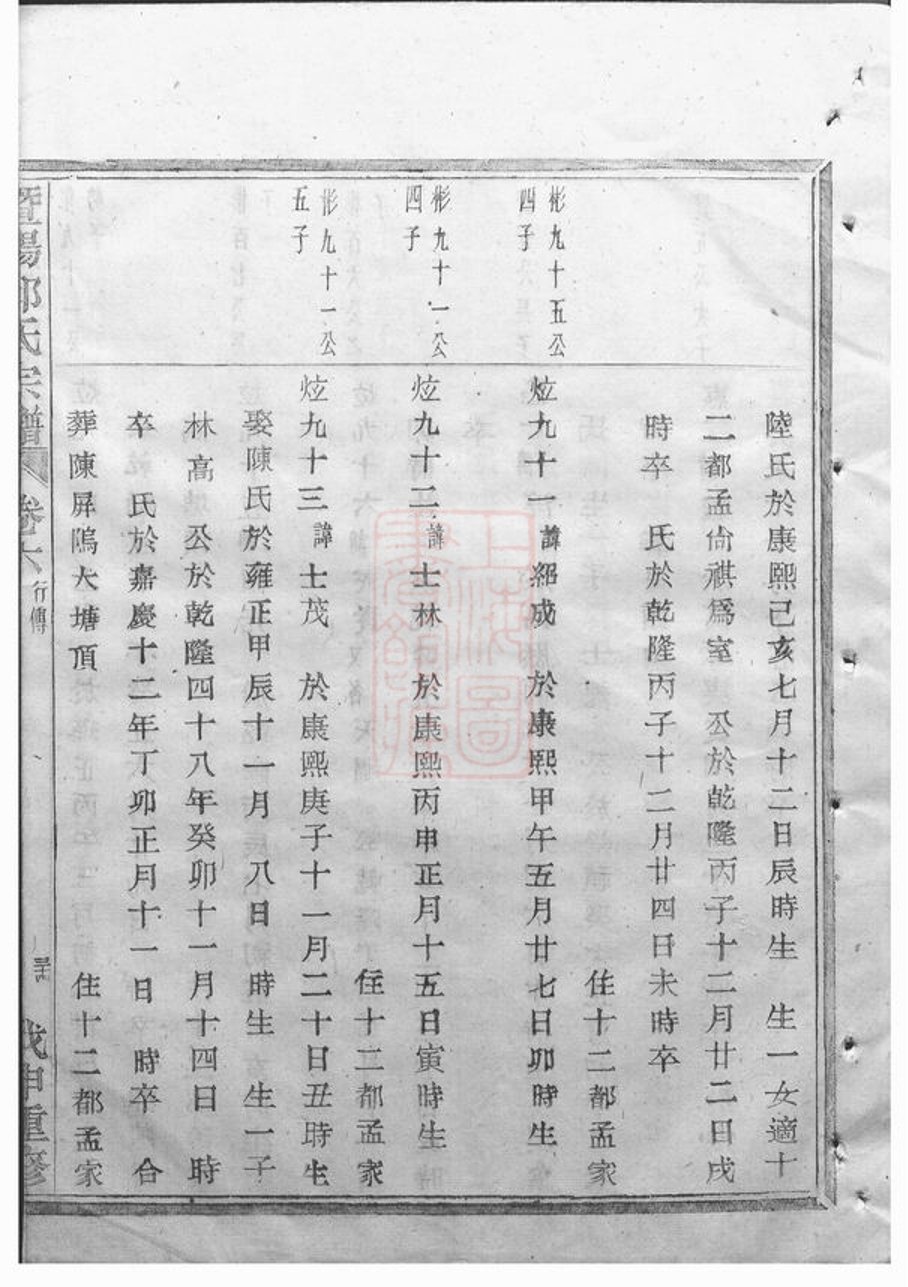 陸氏於康熙己亥七月十二日辰時生　生一女適十
二都孟尙祺爲室　公於乾隆丙子十二月廿二日戌
時卒　氏於乾隆丙子十二月廿四日未時卒
住十二都孟家
彬九十五公
四子
炫九十一諱紹成　於康熙甲午五月廿七日卯時生
住十二都孟家
彬九十一公
四子
炫九十二諱士林　於康熙丙申正月十五日寅時生
彬九十一公
五子
炫九十三諱士茂　於康熙庚子十一月二十日丑時生
娶陳氏於雍正甲辰十一月　八日　時生　生一子
林高　公於乾隆四十八年癸卯十一月十四日　時
卒　氏於嘉慶十二年丁卯正月十一日　時卒　合
葬陳屏隖大塘頂　住十二都孟家
暨陽郭氏宗譜　卷六　行傳　戊申重修
上海圖書館藏